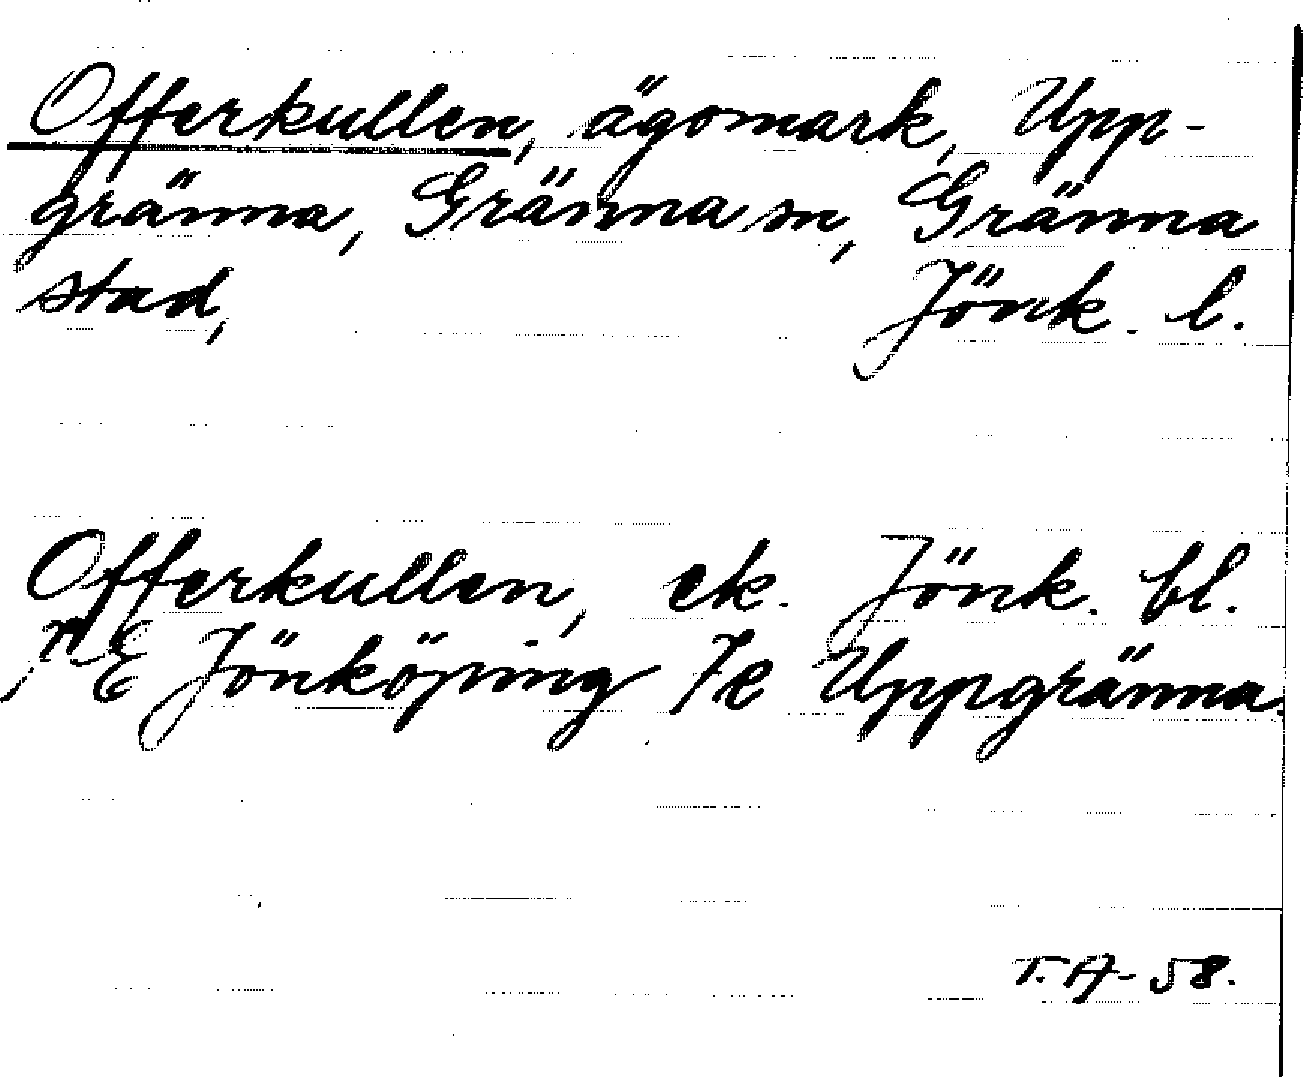 Offerkullen, ägomark, Upp-
gränna, Gränna sn, Gränna
stad, Jönk. l.
Offerkullen, ek. Jönk. bl.
NE Jönköping 7e Uppgränna.
T. A-58.